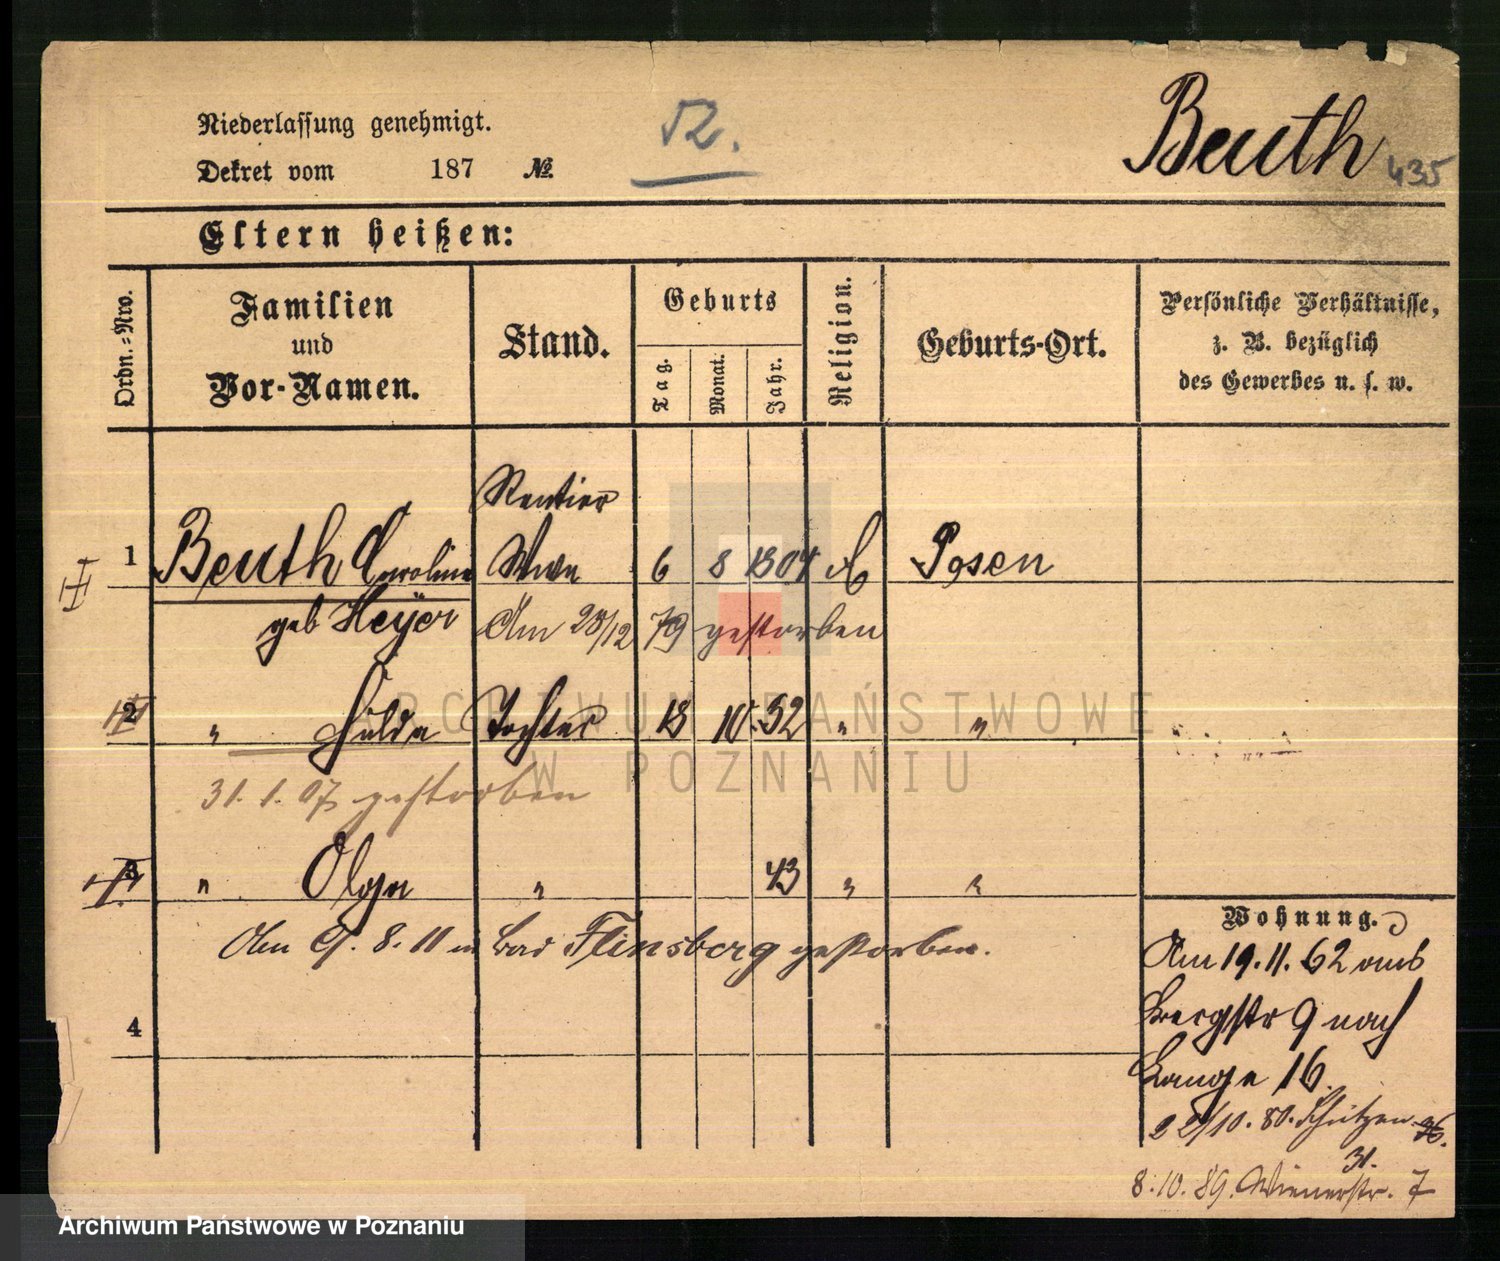 Niederlassung genehmigt.
52.
Beuth
435
Dekret vom 187 No.
Eltern heißen:
Ordn.-Nro.
Familien und Vor-Namen.
Stand.
Geburts
Tag.
Monat.
Jahr.
Religion.
Geburts-Ort.
Persönliche Verhältnisse,
z. B. bezüglich
des Gewerbes u. s. w.
Rentier
1 Beuth Caroline Wwe 6 8 1804 Posen
geb Heyer Am 28/12 79 gestorben
2 " Hulda Tochter 18 10. 32 " "
31. 1. 07 gestorben
3 " Olga " 43 " "
Am 8. 11 in Bad Flinsberg gestorben.
4
Wohnung.
Am 19. 11. 62 aus
Bergstr 9 nach
Lange 16.
22/10. 80. Schützen
31.
8. 10. 89. Wienerstr. 7
ARCHIWUM PAŃSTWOWE
W POZNANIU
Archiwum Państwowe w Poznaniu